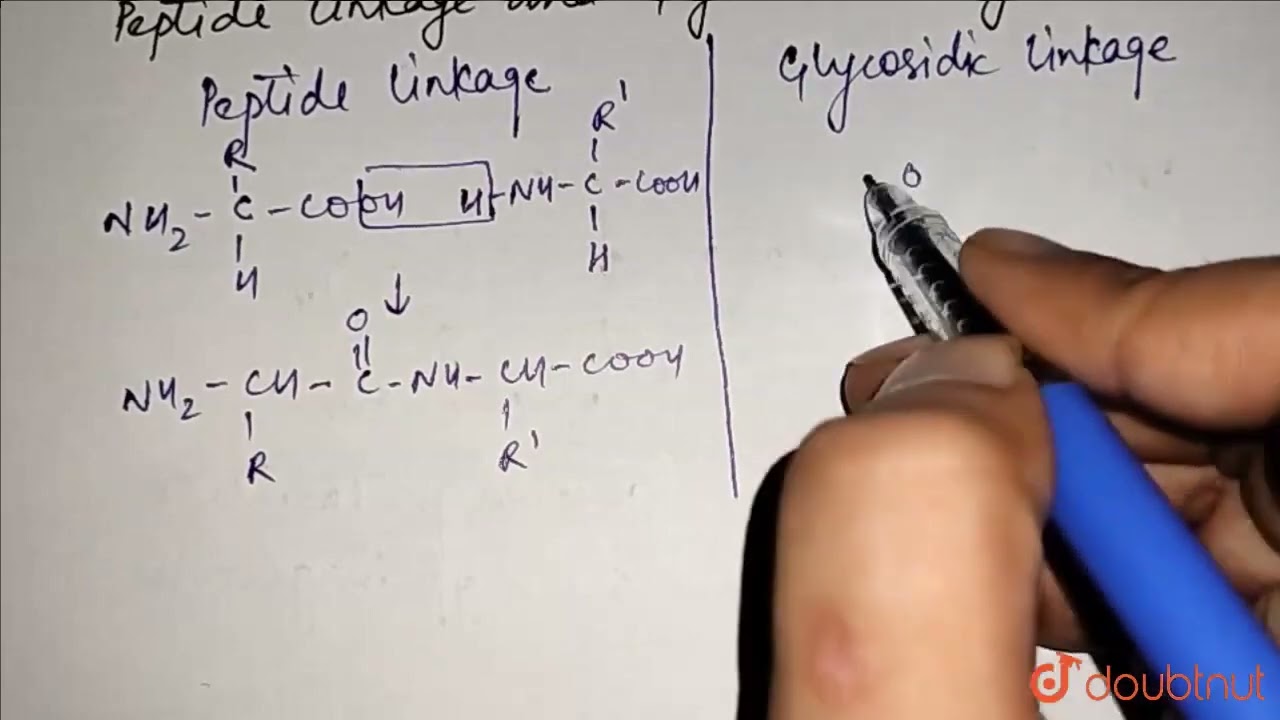 Peptide linkage and
Peptide linkage
R
NH₂ - C - COOH H - NH - C - COOH
H
R'
H
↓
O
||
NH₂ - CH - C - NH - CH - COOH
R
R'
Glycosidic linkage
O
doubtnut